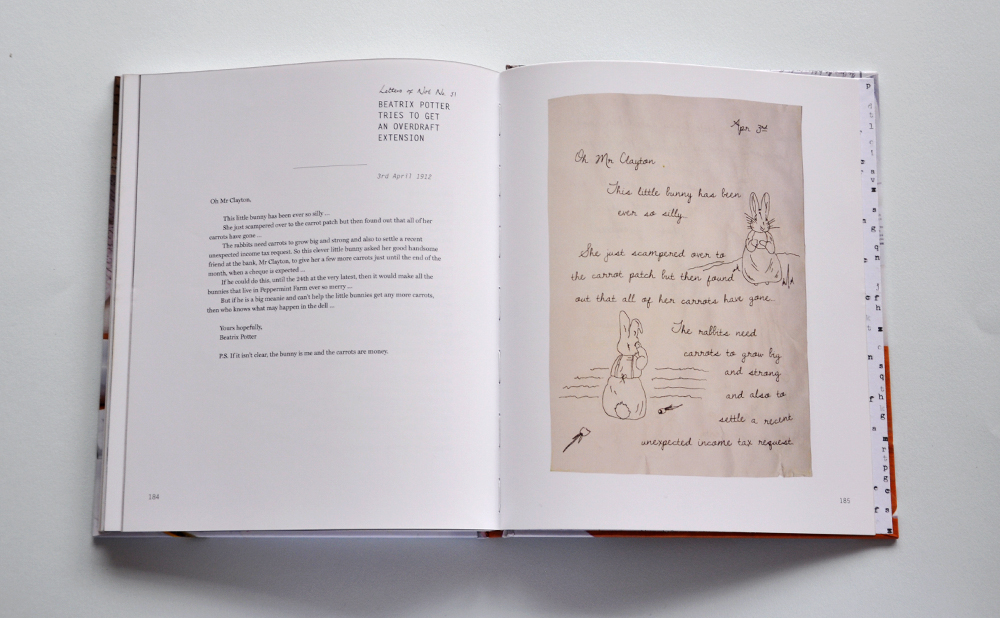 Letters of Not No. 31
BEATRIX POTTER
TRIES TO GET
AN OVERDRAFT
EXTENSION
3rd April 1912
Oh Mr Clayton,
This little bunny has been ever so silly ...
She just scampered over to the carrot patch but then found out that all of her
carrots have gone ...
The rabbits need carrots to grow big and strong and also to settle a recent
unexpected income tax request. So this clever little bunny asked her good handsome
friend at the bank, Mr Clayton, to give her a few more carrots just until the end of the
month, when a cheque is expected ...
If he could do this, until the 24th at the very latest, then it would make all the
bunnies that live in Peppermint Farm ever so merry ...
But if he is a big meanie and can't help the little bunnies get any more carrots,
then who knows what may happen in the dell ...
Yours hopefully,
Beatrix Potter
P.S. If it isn't clear, the bunny is me and the carrots are money.
184
Apr 3rd
Oh Mr Clayton
This little bunny has been
ever so silly...
She just scampered over to
the carrot patch but then found
out that all of her carrots have gone...
The rabbits need
carrots to grow big
and strong
and also to
settle a recent
unexpected income tax request.
185